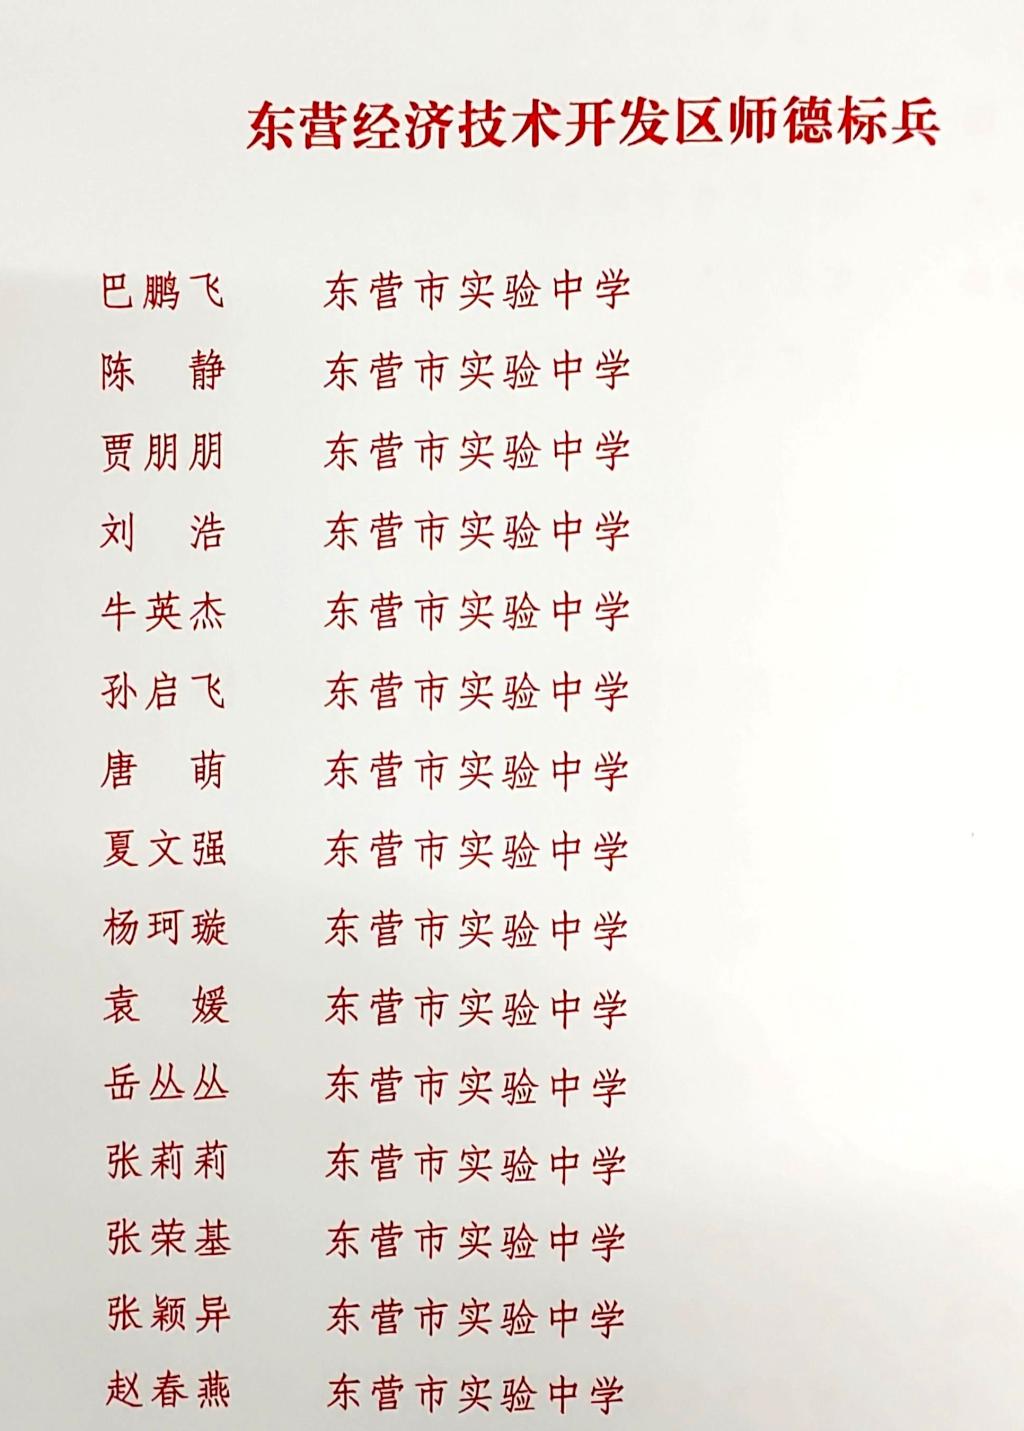 东营经济技术开发区师德标兵
巴鹏飞 东营市实验中学
陈 静 东营市实验中学
贾朋朋 东营市实验中学
刘 浩 东营市实验中学
牛英杰 东营市实验中学
孙启飞 东营市实验中学
唐 萌 东营市实验中学
夏文强 东营市实验中学
杨珂璇 东营市实验中学
袁 媛 东营市实验中学
岳丛丛 东营市实验中学
张莉莉 东营市实验中学
张荣基 东营市实验中学
张颖异 东营市实验中学
赵春燕 东营市实验中学